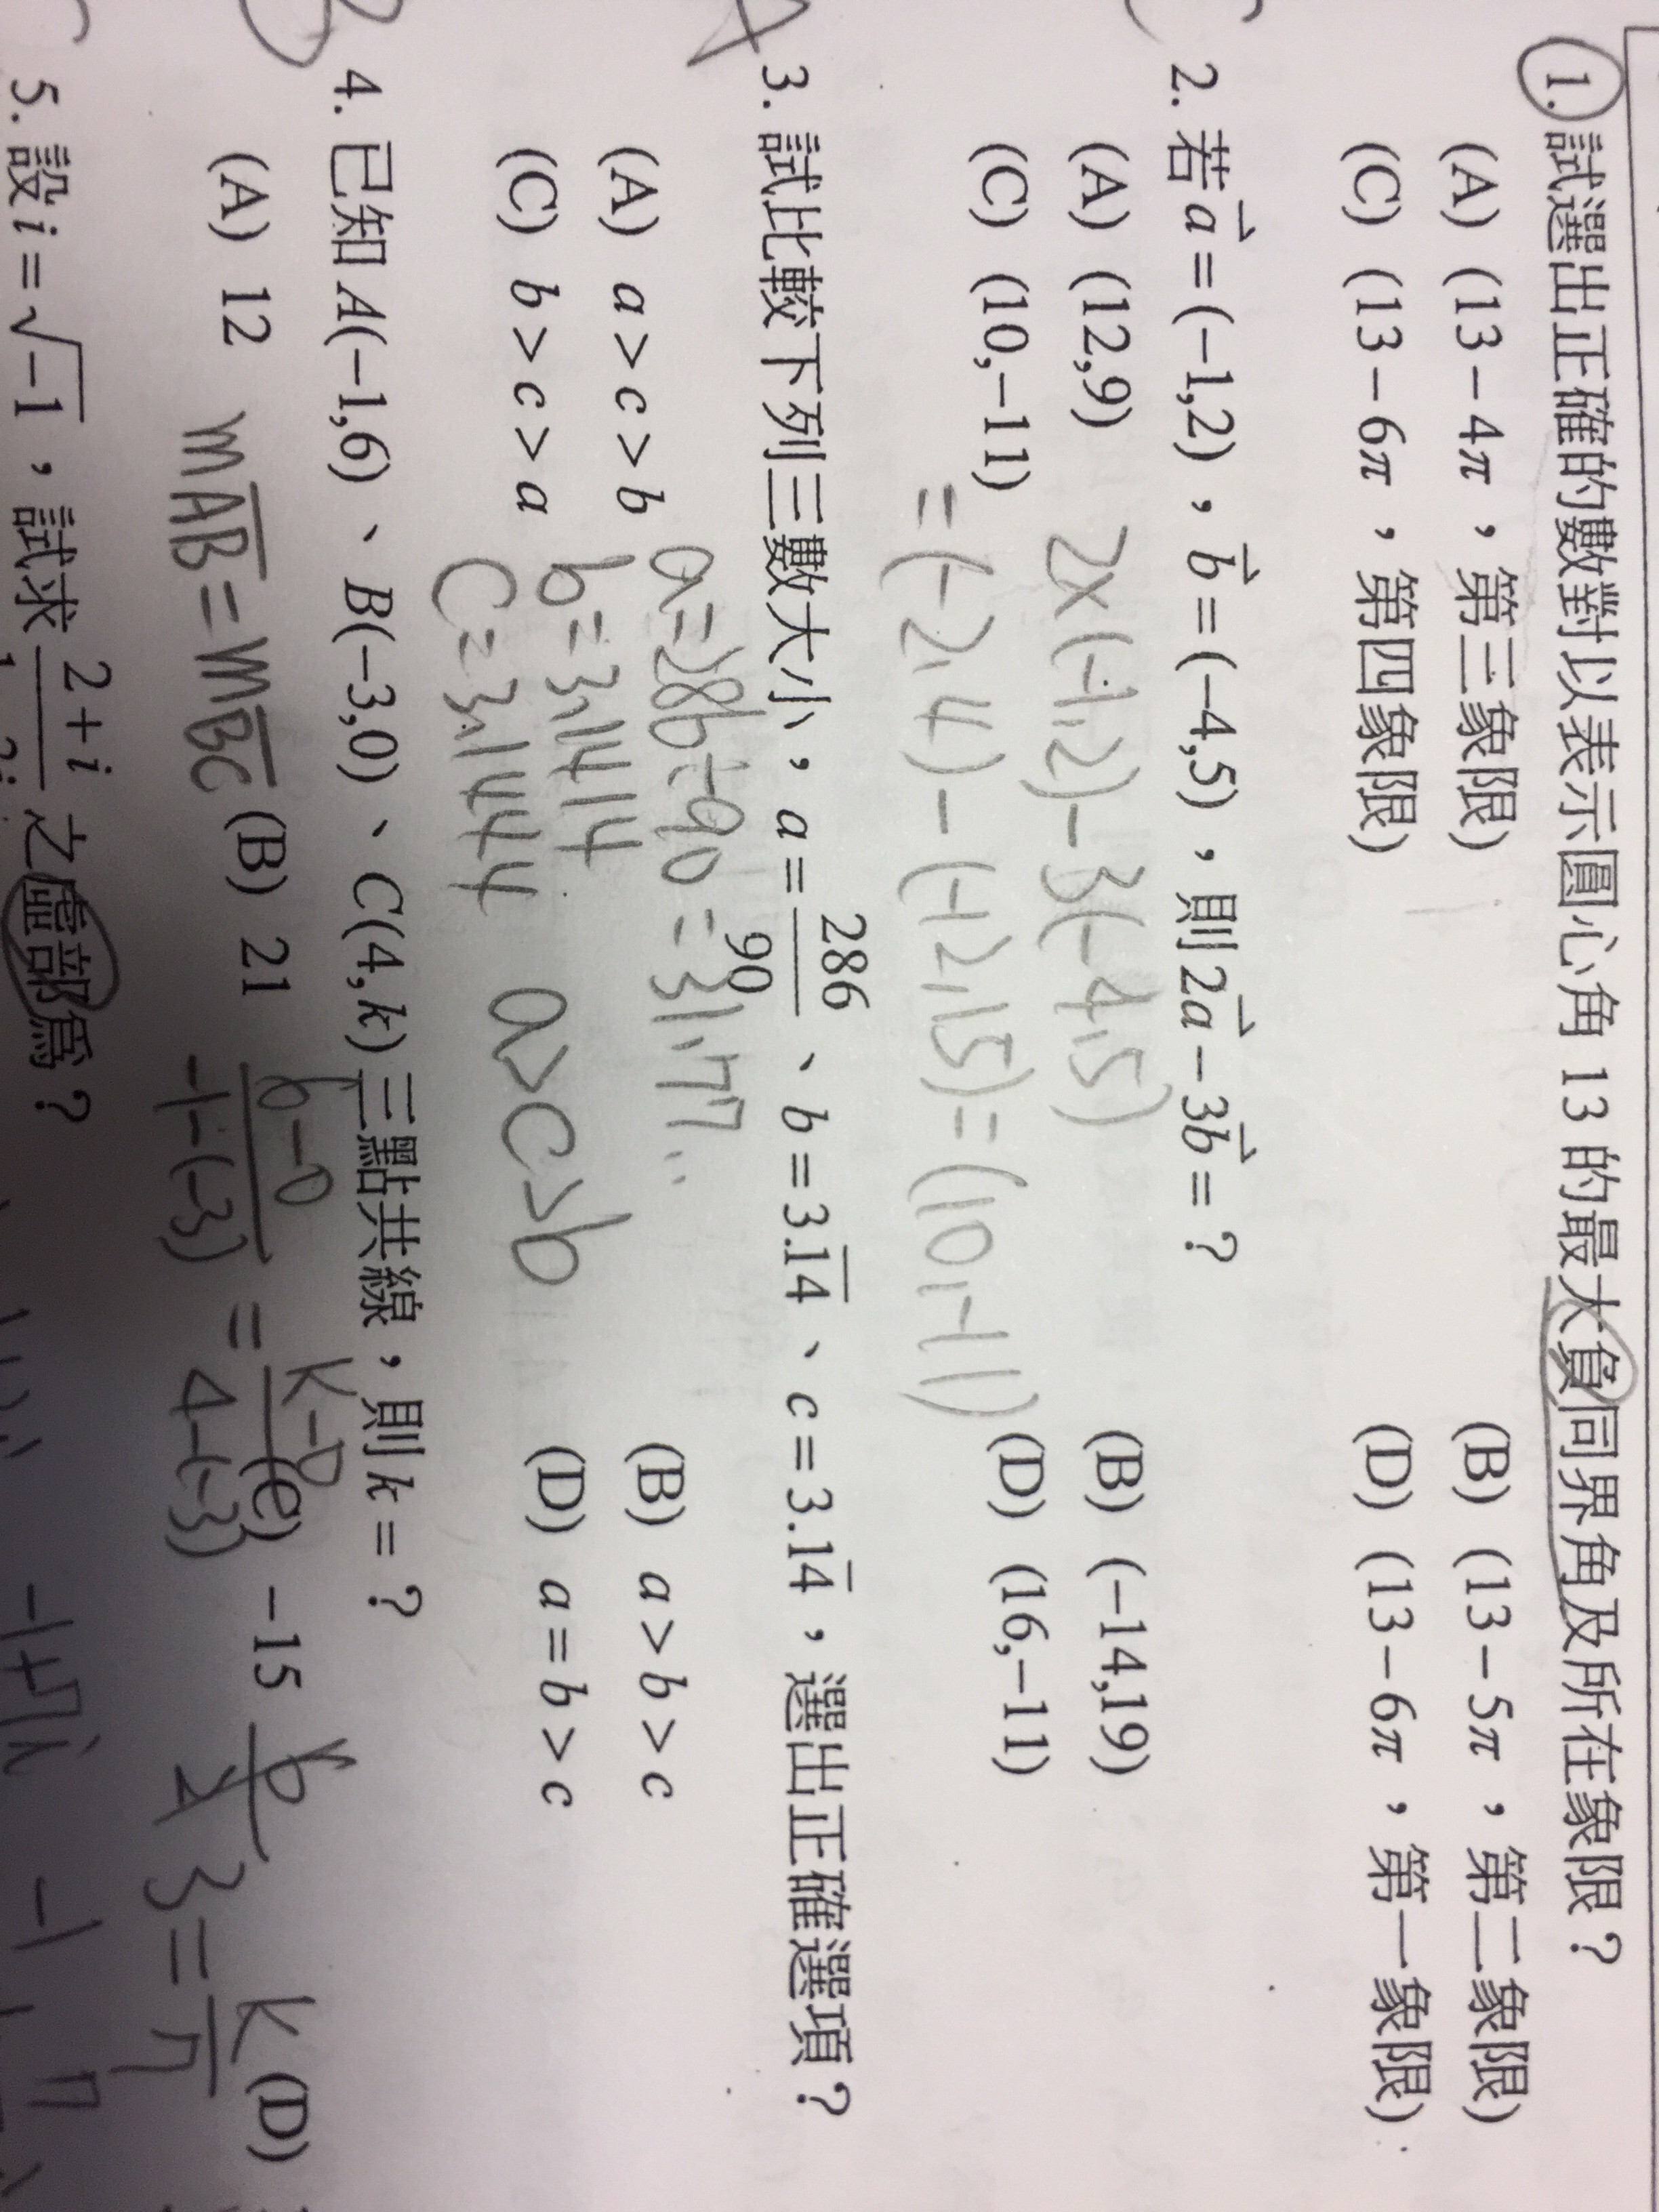 1. 試選出正確的數對以表示圓心角 13 的最大負同界角及所在象限？
(A) (13−4π，第三象限) (B) (13−5π，第二象限)
(C) (13−6π，第四象限) (D) (13−6π，第一象限)
C
2. 若 a⃗=(−1,2)，b⃗=(−4,5)，則 2a⃗−3b⃗=？
(A) (12,9) (B) (−14,19)
2×(-1,2)-3(-4,5)
(C) (10,−11) (D) (16,−11)
=(-2,4)-(-12,15)=(10,-11)
A
3. 試比較下列三數大小，a=286/90、b=3.1̅4̅、c=3.14̅，選出正確選項？
(A) a>c>b (B) a>b>c
a=286÷90=3.177..
(C) b>c>a (D) a=b>c
b=3.1414
c=3.1444 a>c>b
B
4. 已知 A(−1,6)、B(−3,0)、C(4,k) 三點共線，則 k=？
(A) 12 (B) 21 (C) −15 (D)
mAB̅=mBC̅ 6-0/-1-(-3) = k-0/4-(-3) 6/2 3=k/7
5. 設 i=√−1，試求 2+i/ 之虛部為？
-1+7i